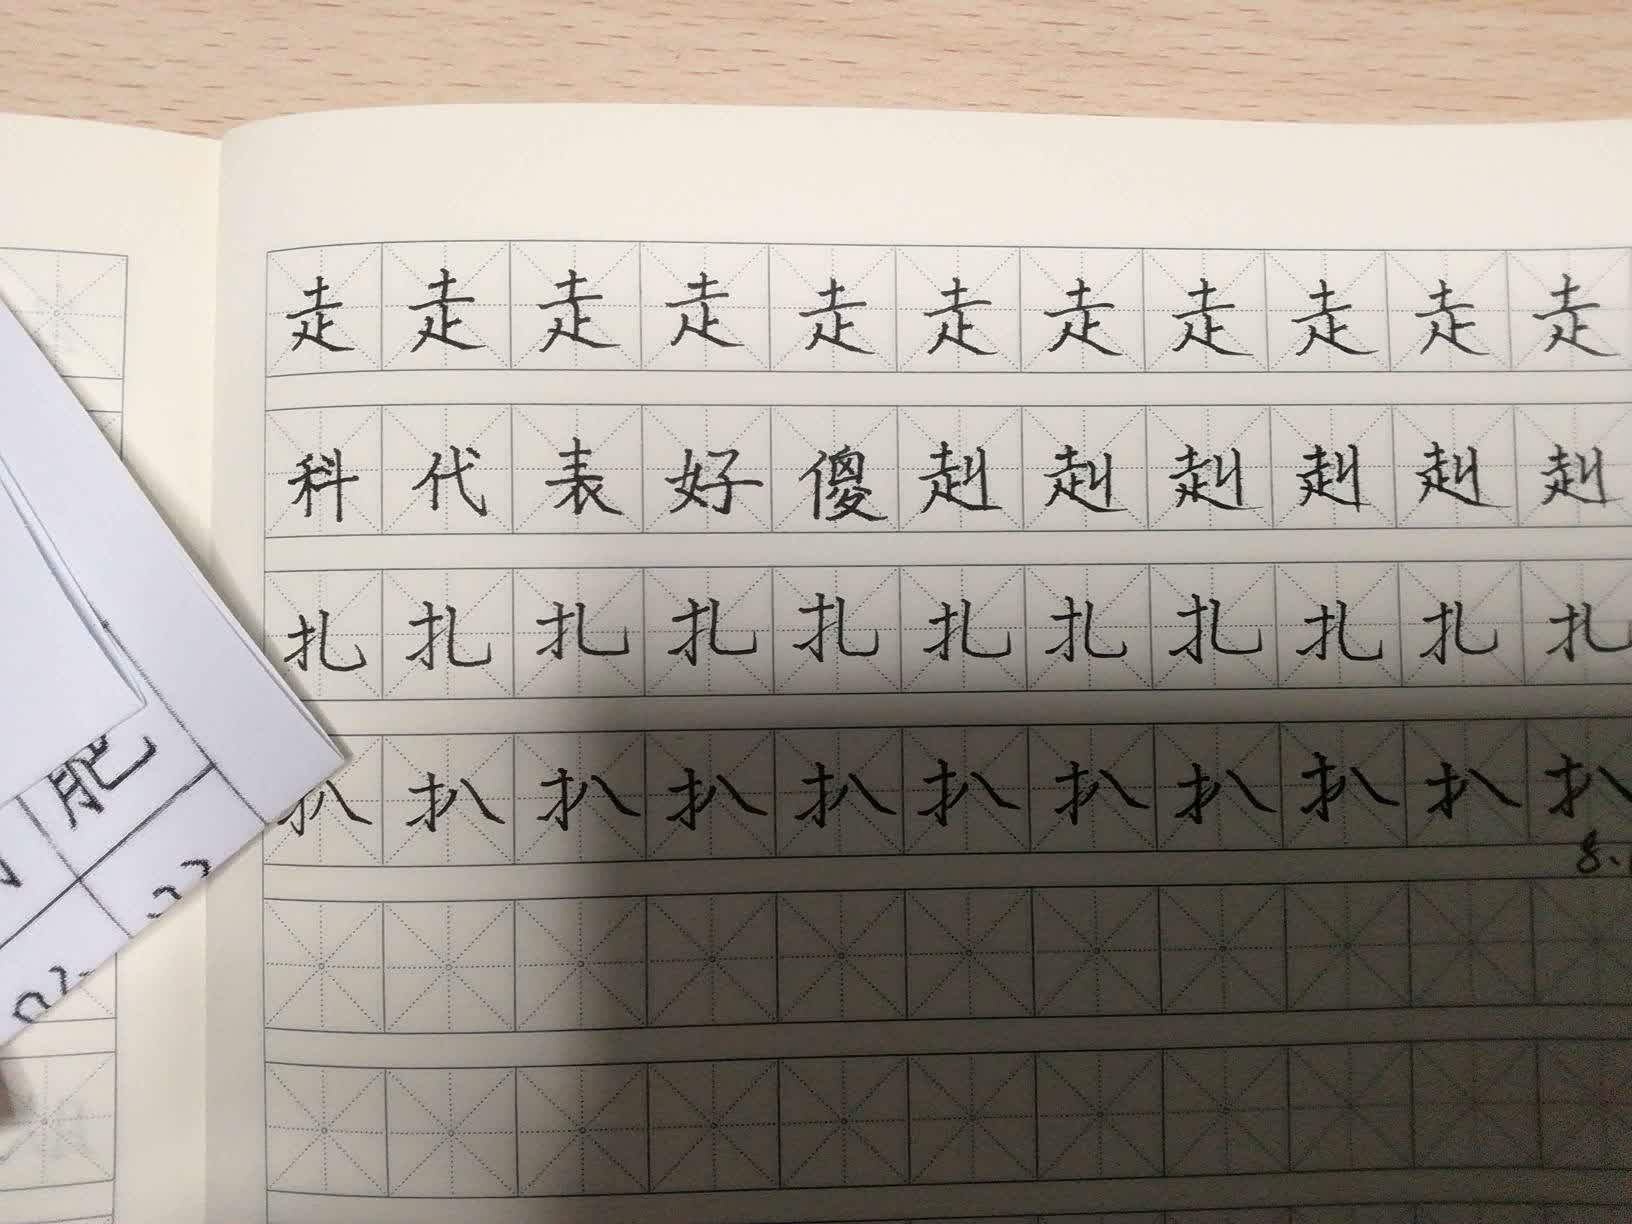 走走走走走走走走走走走
科代表好傻赳赳赳赳赳赳
扎扎扎扎扎扎扎扎扎扎扎
扒扒扒扒扒扒扒扒扒扒扒
8.
肥